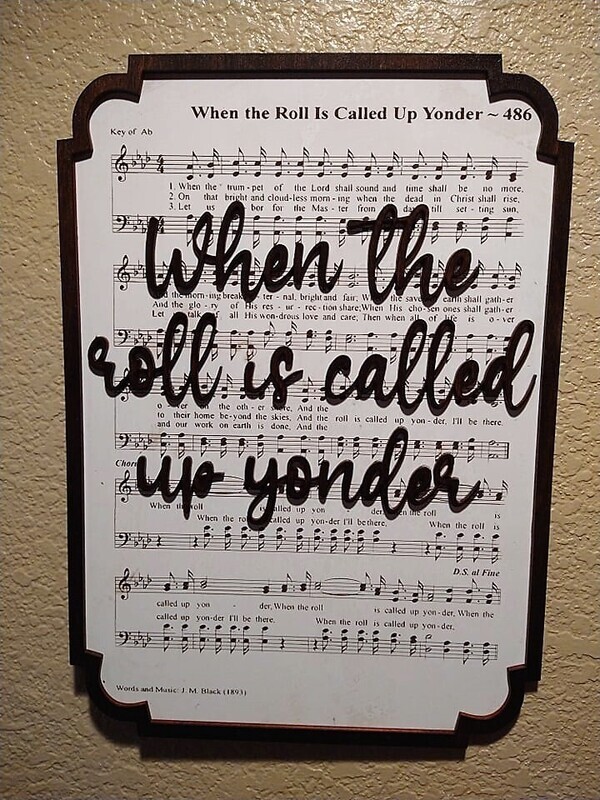 When the Roll Is Called Up Yonder ~ 486
Key of Ab
1. When the trum-pet of the Lord shall sound and time shall be no more,
2. On that bright and cloud-less morn-ing when the dead in Christ shall rise,
3. Let us bor for the Mas-ter from till set-ting sun,
When the
the morn-ing break ter-nal, bright and fair; When the save earth shall gath-er
And the glo-ry of His res-ur-rec-tion share; When His cho-sen ones shall gath-er
Let talk of all His won-drous love and care; Then when all of life is o-ver
roll is called
o-ver on the oth-er And the
to their home be-yond the skies, And the roll is called up yon-der, I'll be there.
and our work on earth is done, And the
up yonder
Chor
When roll is called up yon-der, When the roll is
When the called up yon-der I'll be there, When the roll is
D.S. al Fine
called up yon-der, When the roll is called up yon-der, When the
called up yon-der I'll be there. When the roll is called up yon-der,
Words and Music: J. M. Black (1893)